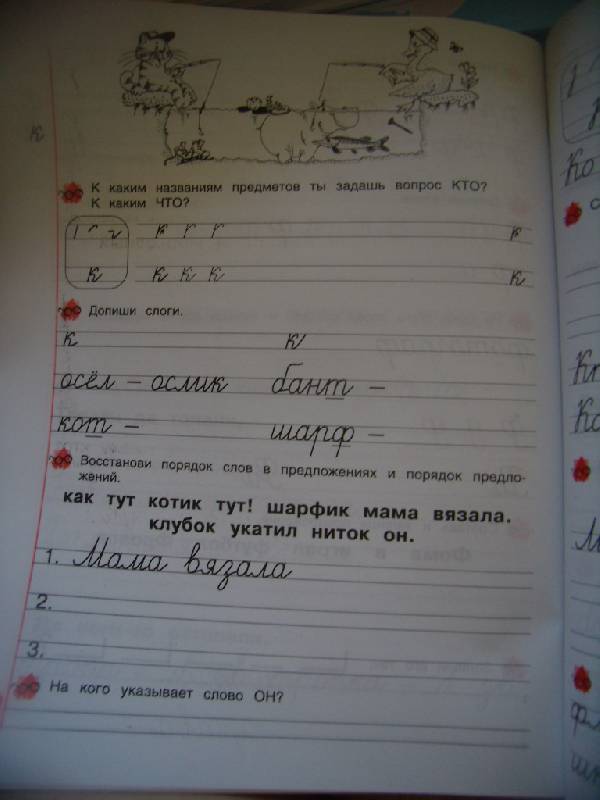 К каким названиям предметов ты задашь вопрос КТО?
К каким ЧТО?
к к к к
Допиши слоги.
к к
осёл – ослик бант –
кот – шарф –
Восстанови порядок слов в предложениях и порядок предло-
жений.
как тут котик тут! шарфик мама вязала.
клубок укатил ниток он.
1. Мама вязала
2.
3.
На кого указывает слово ОН?